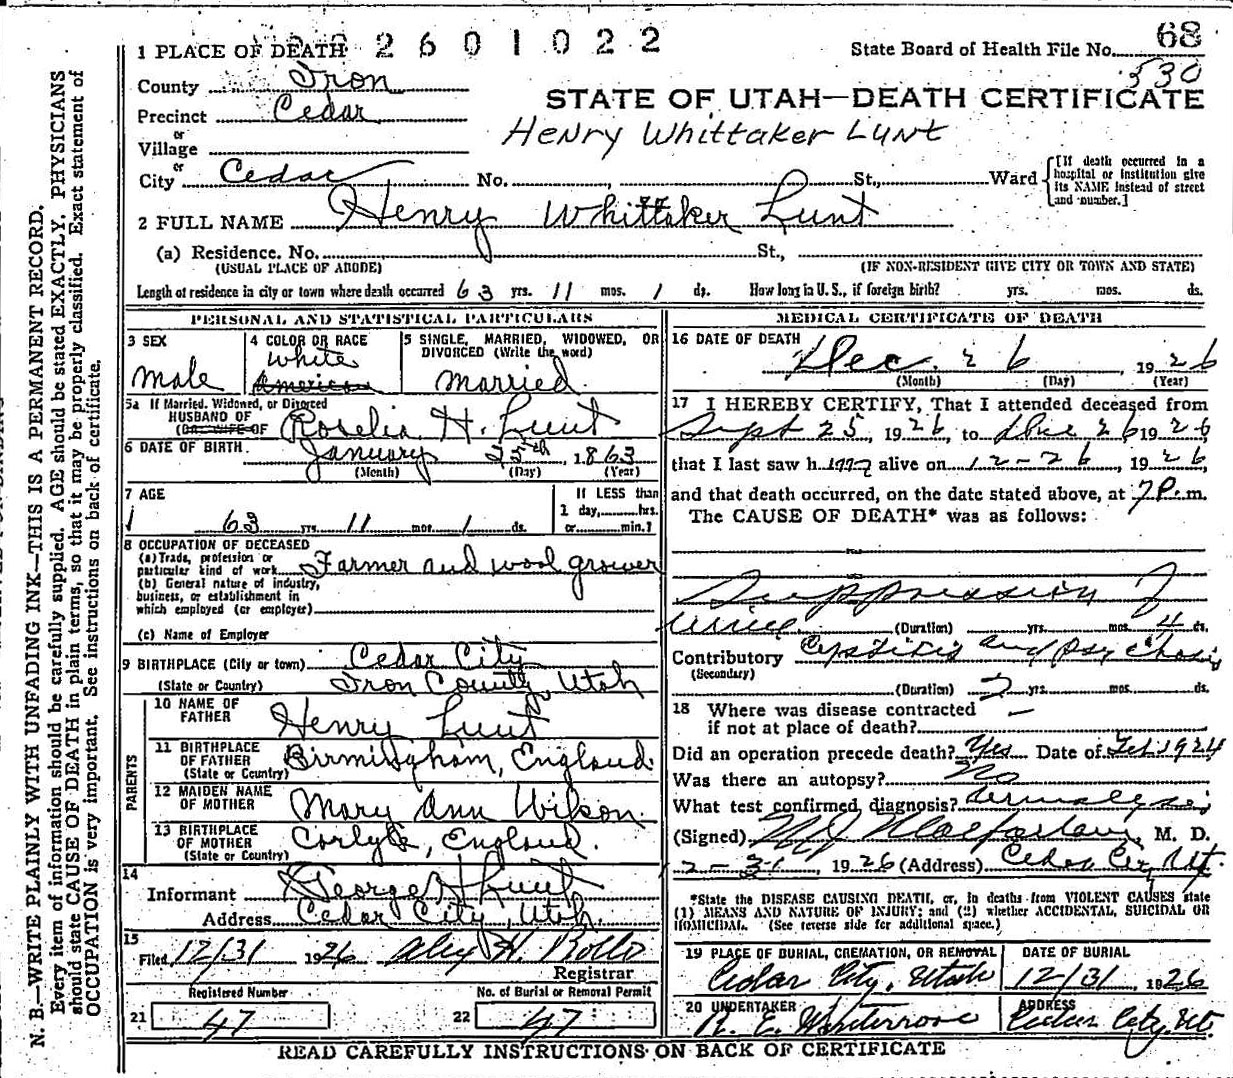 N. B.—WRITE PLAINLY WITH UNFADING INK—THIS IS A PERMANENT RECORD.
Every item of information should be carefully supplied. AGE should be stated EXACTLY. PHYSICIANS
should state CAUSE OF DEATH in plain terms, so that it may be properly classified. Exact statement of
OCCUPATION is very important. See instructions on back of certificate.
2601022
1 PLACE OF DEATH
State Board of Health File No. 68
530
County Iron
Precinct Cedar
STATE OF UTAH—DEATH CERTIFICATE
Henry Whittaker Lunt
or
Village
or
City Cedar No. , St., Ward
[If death occurred in a
hospital or institution give
its NAME instead of street
and number.]
2 FULL NAME Henry Whittaker Lunt
(a) Residence. No. St.,
(USUAL PLACE OF ABODE) (IF NON-RESIDENT GIVE CITY OR TOWN AND STATE)
Length of residence in city or town where death occurred 63 yrs. 11 mos. 1 ds. How long in U. S., if foreign birth? yrs. mos. ds.
PERSONAL AND STATISTICAL PARTICULARS
3 SEX
Male
4 COLOR OR RACE
White
American
5 SINGLE, MARRIED, WIDOWED, OR
DIVORCED (Write the word)
Married
5a If Married, Widowed, or Divorced
HUSBAND OF
(OR WIFE OF Roselia H. Lunt
6 DATE OF BIRTH January 25th, 1863
(Month) (Day) (Year)
7 AGE
63 yrs. 11 mos. 1 ds.
If LESS than
1 day, hrs.
or min.?
8 OCCUPATION OF DECEASED
(a) Trade, profession or
particular kind of work Farmer and wool grower
(b) General nature of industry,
business, or establishment in
which employed (or employer)
(c) Name of Employer
9 BIRTHPLACE (City or town) Cedar City
(State or Country) Iron County, Utah
PARENTS
10 NAME OF
FATHER Henry Lunt
11 BIRTHPLACE
OF FATHER Birmingham, England
(State or Country)
12 MAIDEN NAME
OF MOTHER Mary Ann Wilson
13 BIRTHPLACE
OF MOTHER Carlyle, England.
(State or Country)
14
Informant George H Lunt
Address Cedar City, Utah.
15
Filed 12/31 1926 Alex H. Rollo
Registrar
Registered Number No. of Burial or Removal Permit
21 47 22 47
MEDICAL CERTIFICATE OF DEATH
16 DATE OF DEATH
Dec. 26, 1926
(Month) (Day) (Year)
17 I HEREBY CERTIFY, That I attended deceased from
Sept 25, 1926, to Dec 26 1926,
that I last saw him alive on 12-26, 1926,
and that death occurred, on the date stated above, at 7P.m.
The CAUSE OF DEATH* was as follows:
Suppression of
urine (Duration) yrs. mos. 4 ds.
Contributory Cystitis and Psychosis
(Secondary)
(Duration) 2 yrs. mos. ds.
18 Where was disease contracted
if not at place of death? —
Did an operation precede death? Yes Date of Feb. 1924
Was there an autopsy? No
What test confirmed diagnosis? Urinalysis
(Signed) Macfarlane, M. D.
2-31, 1926 (Address) Cedar City Ut.
*State the DISEASE CAUSING DEATH, or, in deaths from VIOLENT CAUSES state
(1) MEANS AND NATURE OF INJURY; and (2) whether ACCIDENTAL, SUICIDAL OR
HOMICIDAL. (See reverse side for additional space.)
19 PLACE OF BURIAL, CREMATION, OR REMOVAL
Cedar City, Utah
DATE OF BURIAL
12/31 1926
20 UNDERTAKER
R. E. Winterrose
ADDRESS
Cedar City, Ut.
READ CAREFULLY INSTRUCTIONS ON BACK OF CERTIFICATE